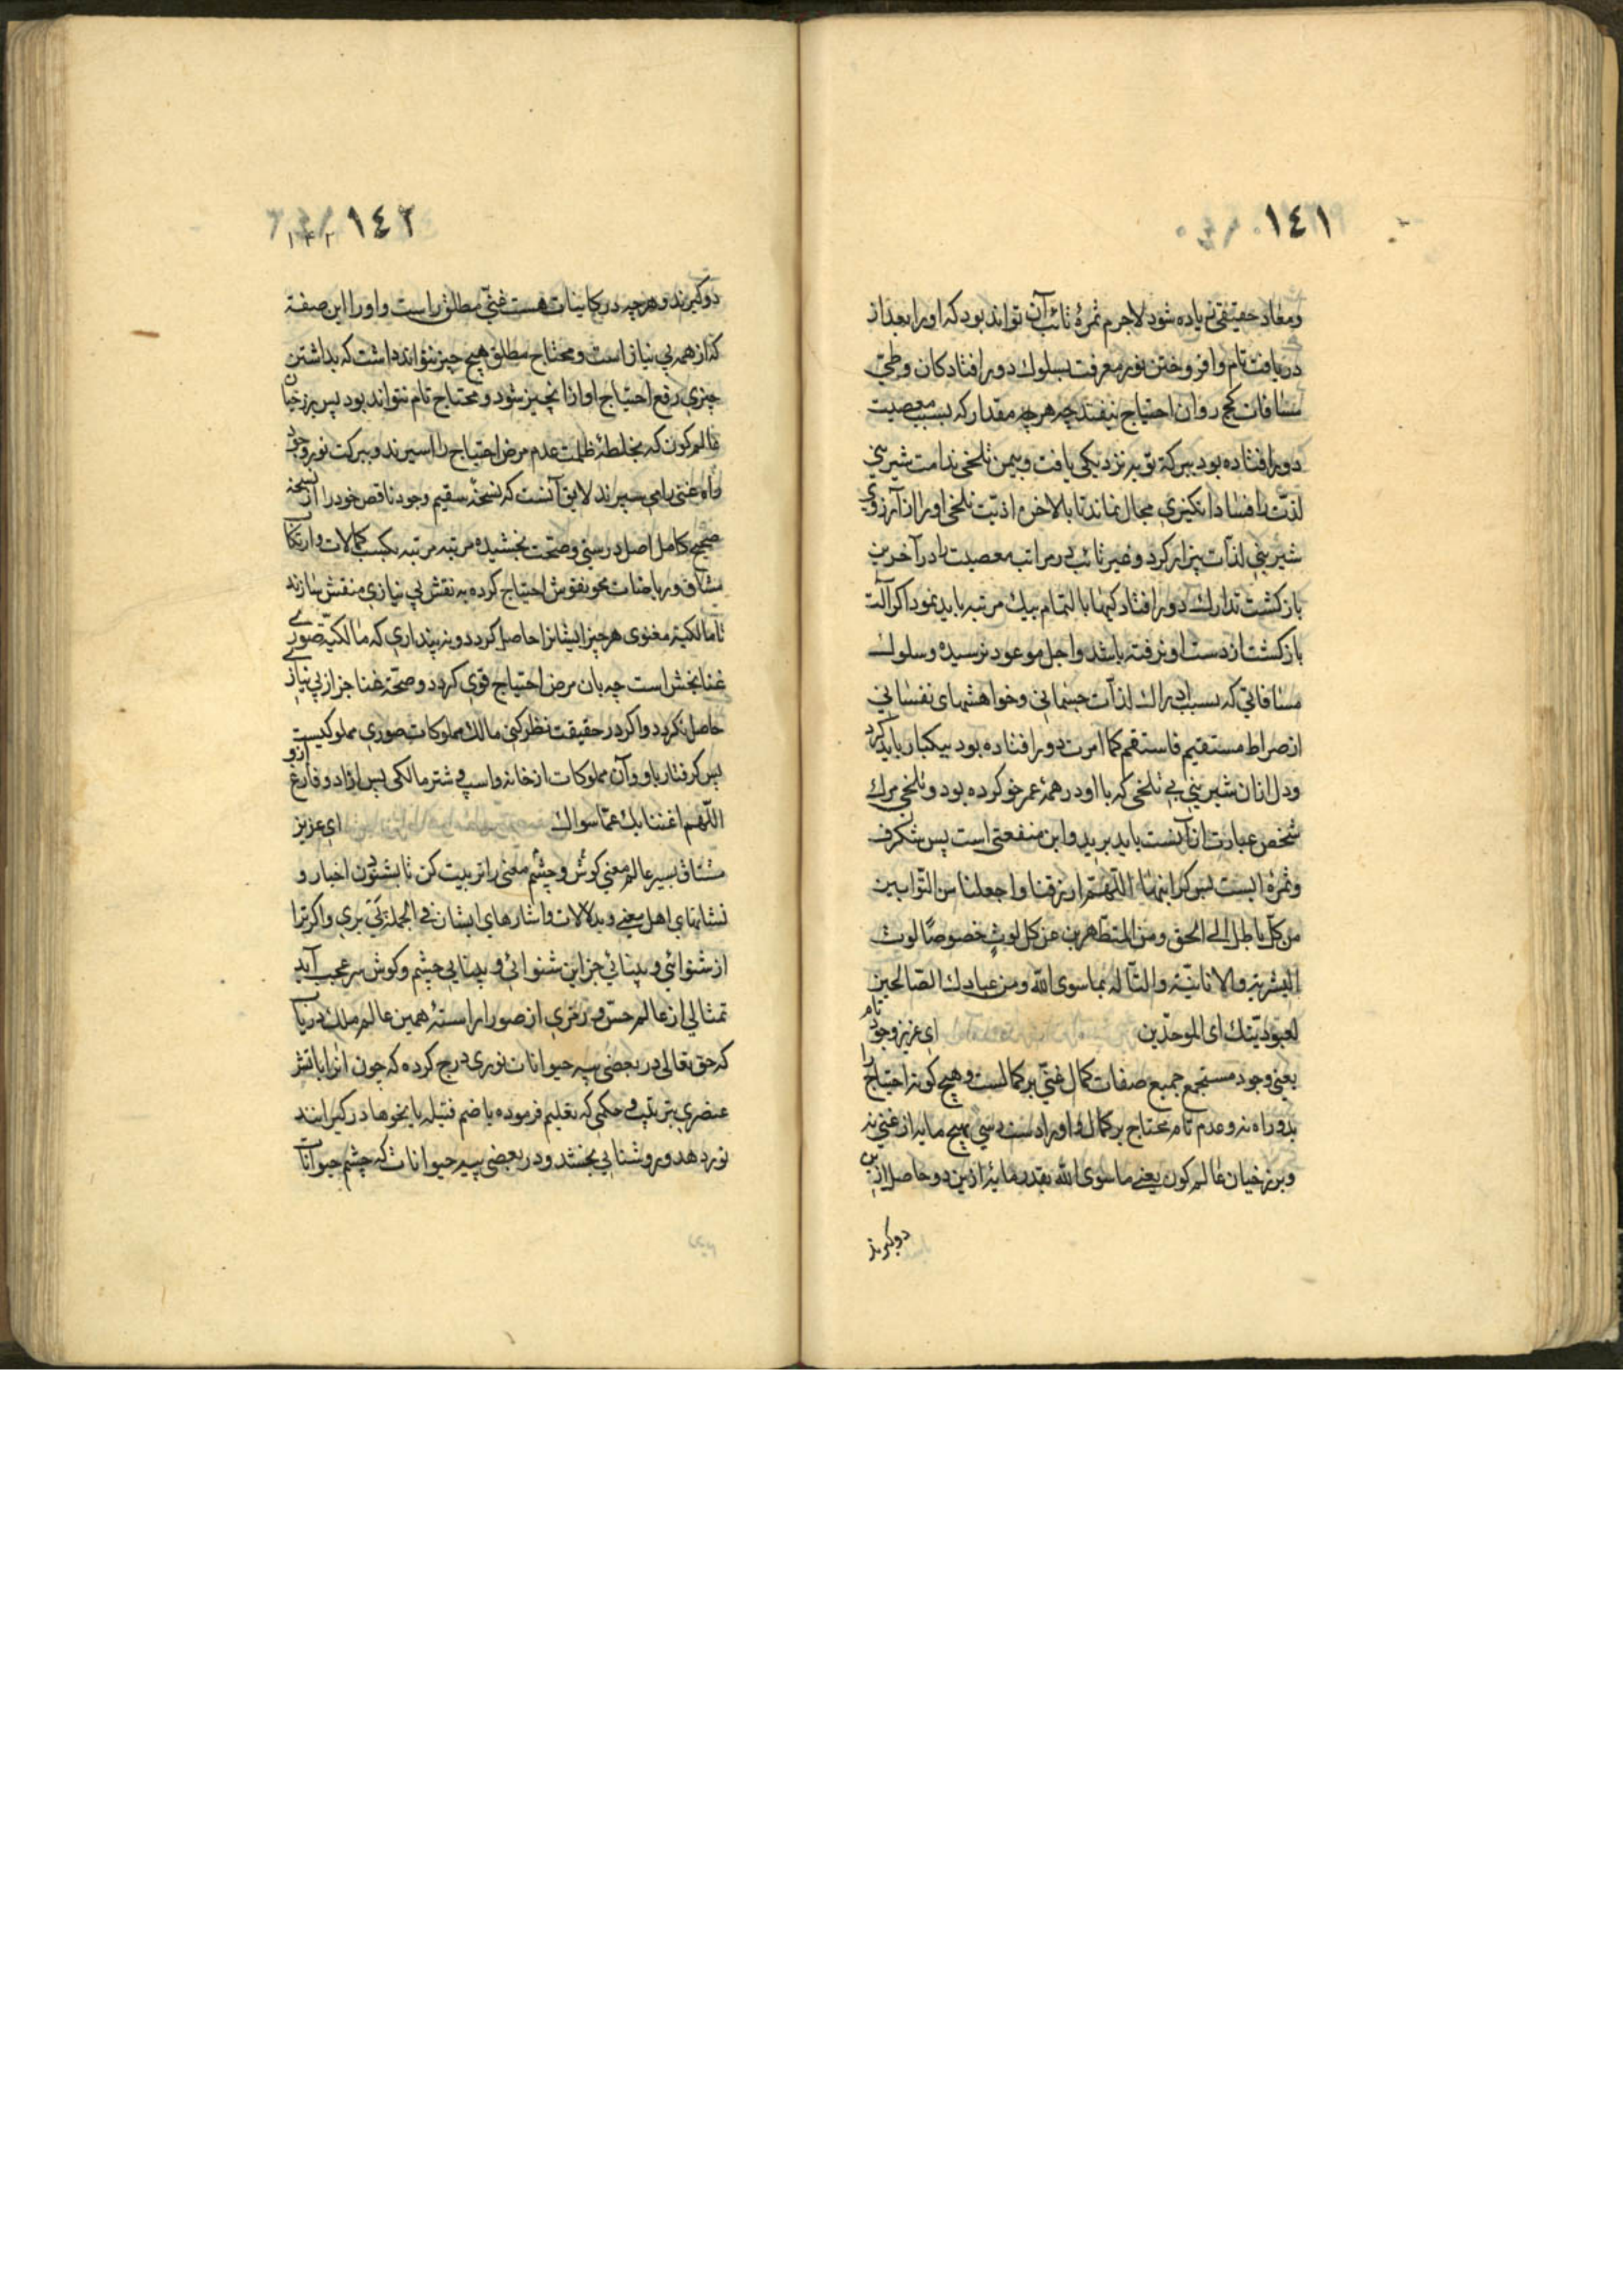 ١٤١
ومعاد حقیقی زیاده شود لاجرم ثمرهٔ تائب آن تواند بود که اورا بعد از
دریافت تام وافروختن نور معرفت بسلوك دور افتادکان وطی
مسافات کج روان احتیاج نیفتد چه هرچه مقدار که بسبب معصیت
دور افتاده بود ببرکة توبه نزدیکی یافت وبیمن تلخی ندامت شیرینی
لذت را فساد انکیزی مجال نماند تا بالاخره اذیت تلخی اورا از آرزوی
شیرینی لذات بیزار کرد وغیر تائب بی مراتب معصیت را در آخرین
بازکشت تدارك دور افتادکیها بالتمام بیك مرتبه باید نمود اکر آلت
بازکشت از دست او نرفته باشد واجل موعود نرسیده وسلوك
مسافاتی که بسبب ادراك لذات جسمانی وخواهشهای نفسانی
از صراط مستقیم فاستقم کما امرت دور افتاده بود بیکبار باید کرد
ودل ازان شیرینی بی تلخی که با او در همهٔ عمر خو کرده بود وتلخی مرك
شخص عبارت ازآنست باید برید واین منفعتی است بس شکرف
وثمرهٔ ایست بس کرانبها اللهم ارزقنا واجعلنا من التوابین
من کل باطل الی الحق ومن المتطهرین عن کل لوث خصوصًا لوث
البشریة والانانیة والتأله بما سوی الله ومن عبادك الصالحین
لعبودیتك ای الموحدین ای عزیز وجود تام
یعنی وجود مستجمع جمیع صفات کمال غنی بر کمالست وهیچ کونه احتیاج را
بدو راه نه وعدم تام محتاج بر کمال واورا دست رسی بهیچ مایه از غنی نه
وبرزخیان عالم کون یعنی ما سوی الله بقدر مایهٔ ازین دو حاصل ازین
دو کیرند
١٤٢
١٤٢
دو کیرند وهرچه در کاینات هست غنی مطلق راست واورا این صفة
که از همه بی نیاز است ومحتاج مطلق هیچ چیز نتواند داشت که بداشتن
چیزی رفع احتیاج او ازانچیز شود ومحتاج تام نتواند بود پس برزخیان
عالم کون که بخلطهٔ ظلمت عدم مرض احتیاج را اسیرند وببرکت نور وجود
راه غنی را می سپرند لایق آنست که نسخهٔ سقیم وجود ناقص خود را از نسخه
صحیح کامل اصل درستی وصحت بخشیده مرتبه مرتبه بکسب کمالات وارتکاب
مشاق وریاضات محو نقوش احتیاج کرده به نقش بی نیازی منقش سازند
تا مالکیة معنوی هر چیز ایشانرا حاصل کردد ونه پنداری که مالکیة صوری
غنا بخش است چه بان مرض احتیاج قوی کردد وصحة غنا جز از بی نیازی
حاصل نکردد واکر در حقیقت نظر کنی مالك مملوکات صوری مملوکیست
پس کرفتار باو وآن مملوکات از خانه واسپ وشتر مالکی بس ازاد وفارغ ازو
اللهم اغننا بك عمّا سواك ای عزیز
مشتاق بسیر عالم معنی کوش وچشم معنی را تربیت کن تا بشنودن اخبار و
نشانهای اهل معنی وبدلالات واشارهای ایشان فی الجملة پی بری واکر ترا
از شنوائی وبینائی جز این شنوائی وبینایی چشم وکوش سر عجب آید
تمثالی از عالم حسّ ورمزی از صور اراستهٔ همین عالم ملك دریاب
که حق تعالی در بعضی پیه حیوانات نوری درج کرده که چون انرا باتش
عنصری بترتیب وحکمی که تعلیم فرموده یا ضم فتیله یا بنحوها درکیرانند
نور دهد وروشنایی بخشد ودر بعضی پیه حیوانات که چشم حیوانات